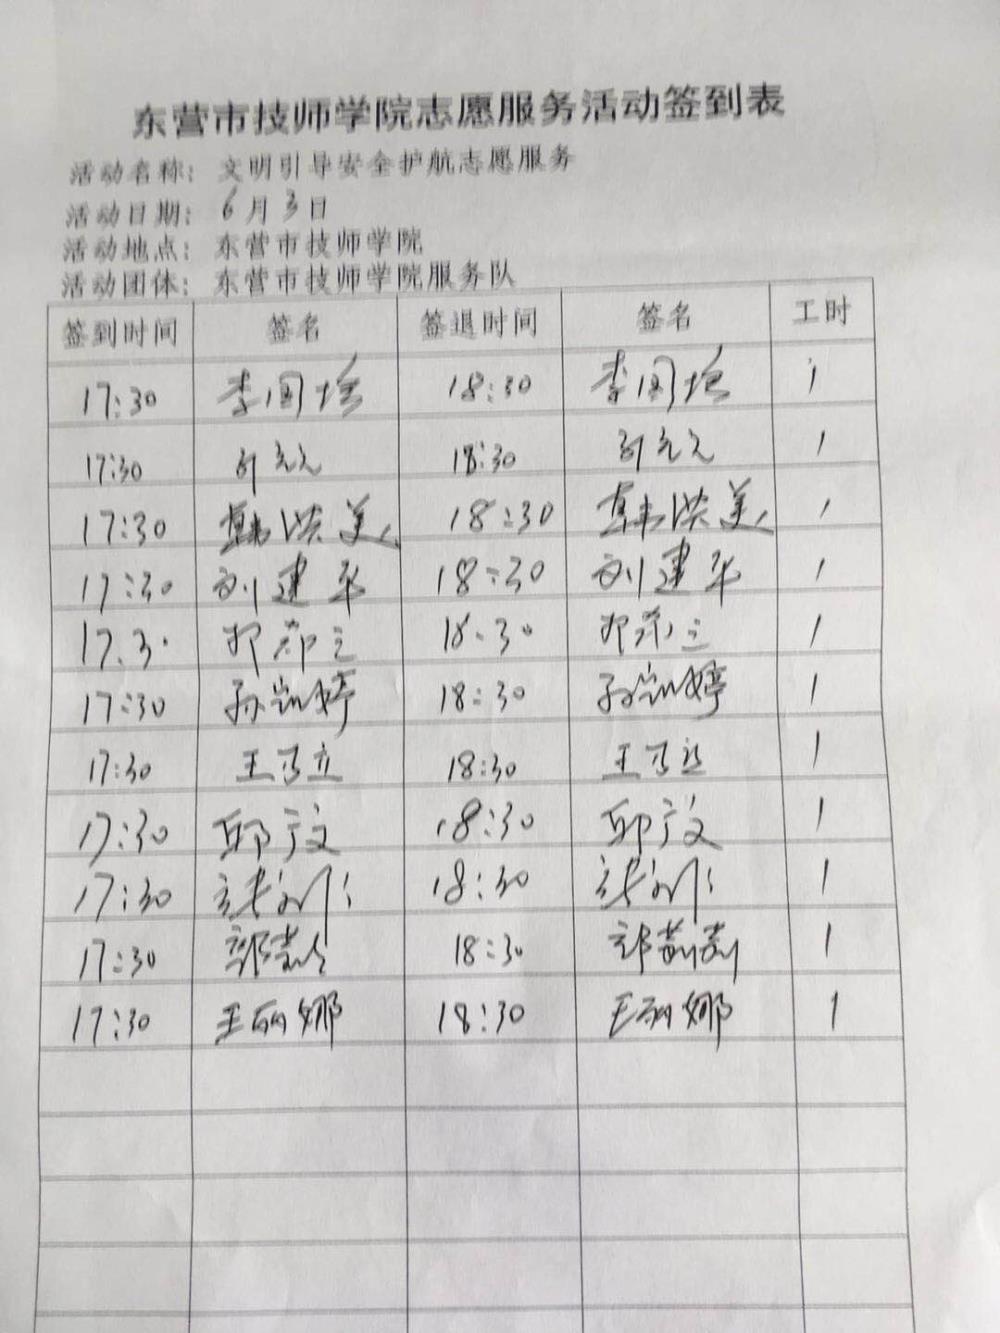 东营市技师学院志愿服务活动签到表
活动名称：文明引导安全护航志愿服务
活动日期：6月3日
活动地点：东营市技师学院
活动团体：东营市技师学院服务队
签到时间 签名 签退时间 签名 工时
17:30 李国培 18:30 李国培 1
17:30 18:30 1
17:30 韩洪美 18:30 韩洪美 1
17:30 刘建华 18:30 刘建华 1
17.30 18.30 1
17:30 孙凯婷 18:30 孙凯婷 1
17:30 王乃立 18:30 王乃立 1
17:30 邱文 18:30 邱文 1
17:30 18:30 1
17:30 18:30 郭莉莉 1
17:30 王丽娜 18:30 王丽娜 1